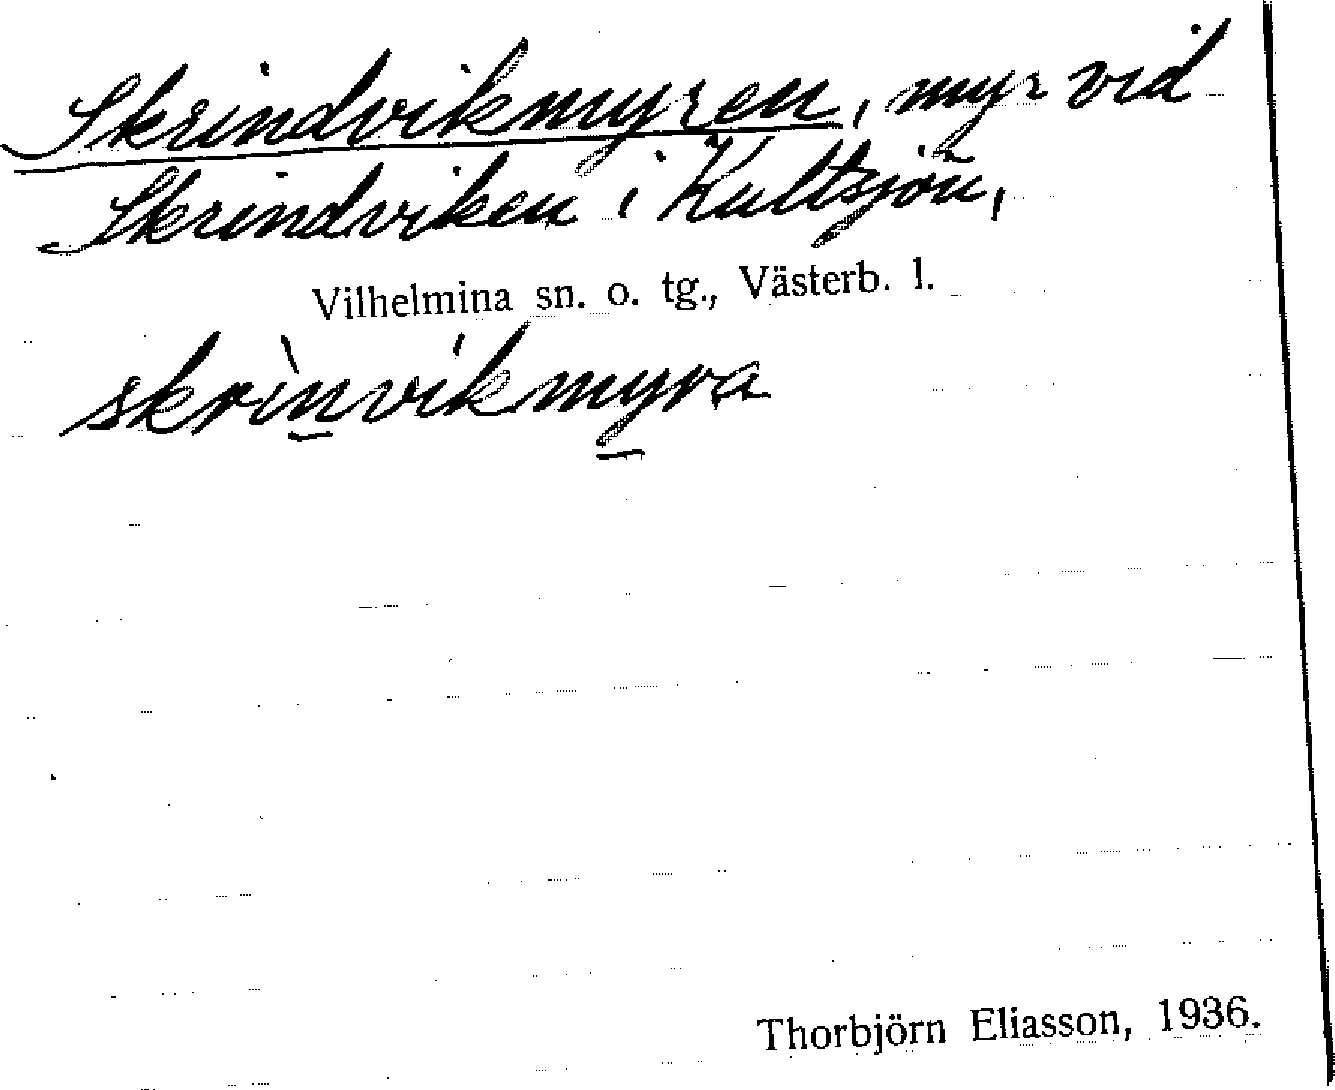 Skrindvikmyren, myr vid
Skrindviken i Kultsjön,
Vilhelmina sn. o. tg., Västerb. l.
skrìnvikmyra
Thorbjörn Eliasson, 1936.